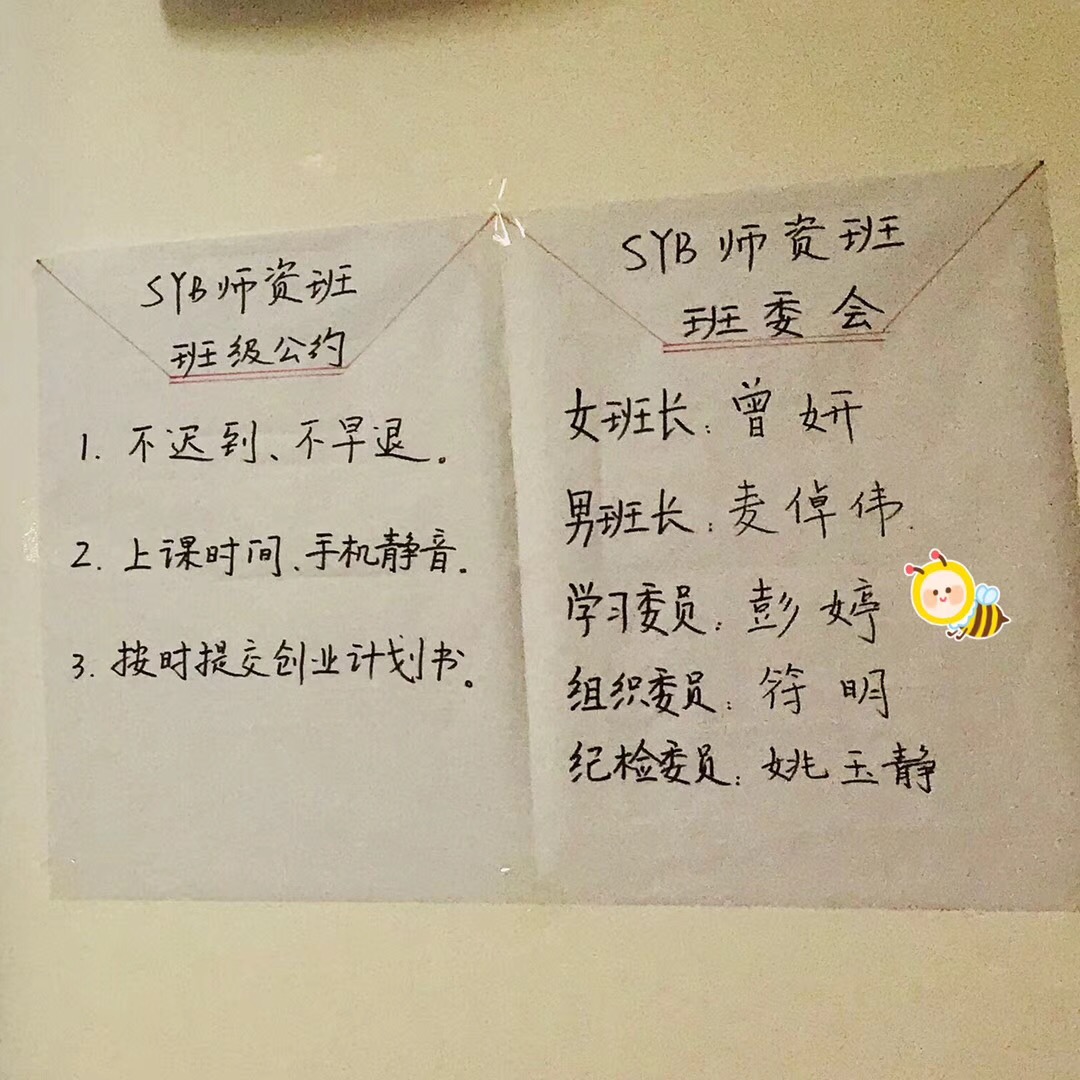 SYB师资班
班级公约
1. 不迟到、不早退。
2. 上课时间、手机静音。
3. 按时提交创业计划书。
SYB师资班
班委会
女班长：曾妍
男班长：麦倬伟
学习委员：彭婷
组织委员：符明
纪检委员：姚玉静